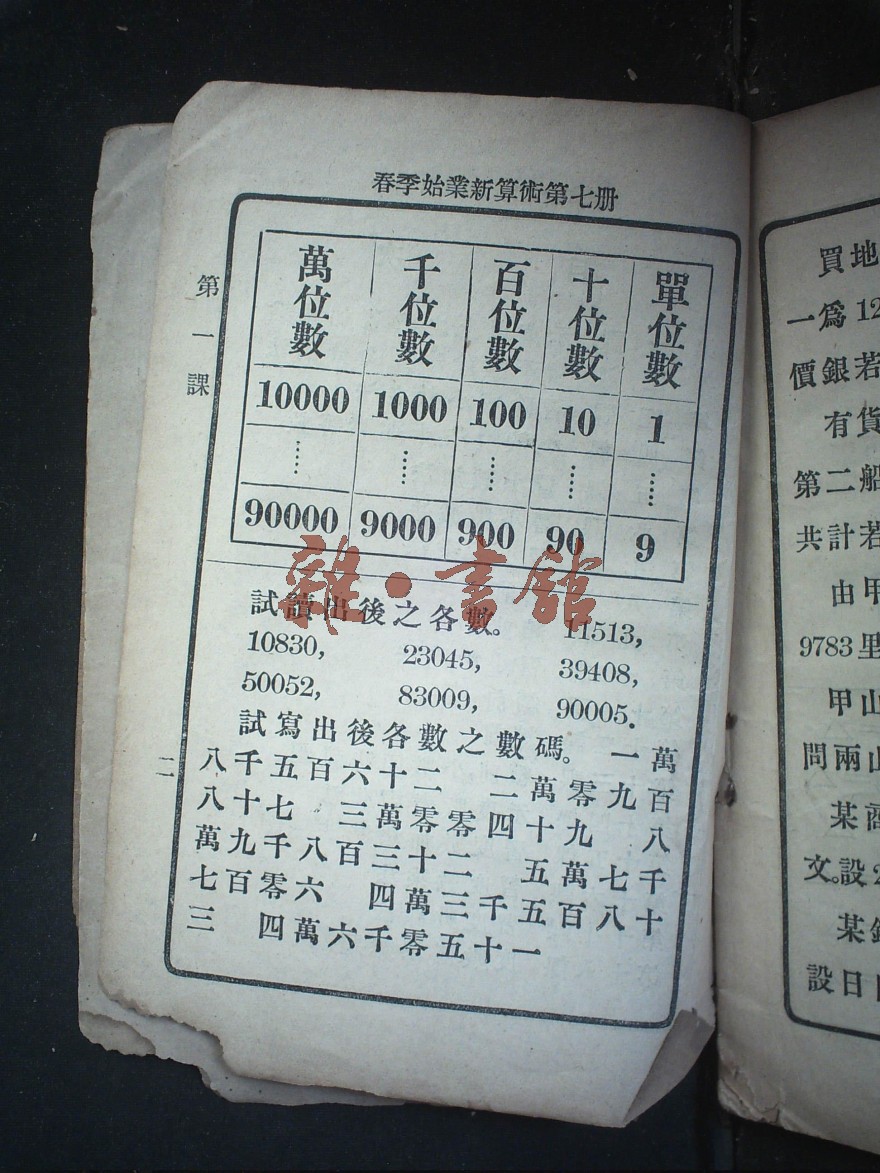 春季始業新算術第七册
第一課
萬位數 千位數 百位數 十位數 單位數
10000 1000 100 10 1
⋮ ⋮ ⋮ ⋮ ⋮
90000 9000 900 90 9
試讀出後之各數。 11513,
10830, 23045, 39408,
50052, 83009, 90005.
試寫出後各數之數碼。 一萬
八千五百六十二 二萬零九百
八十七 三萬零零四十九 八
萬九千八百三十二 五萬七千
七百零六 四萬三千五百八十
三 四萬六千零五十一
二
雜·書館
買地
一爲12
價銀若
有貨
第二船
共計若
由甲
9783里
甲山
問兩山
某商
文。設2
某
設日